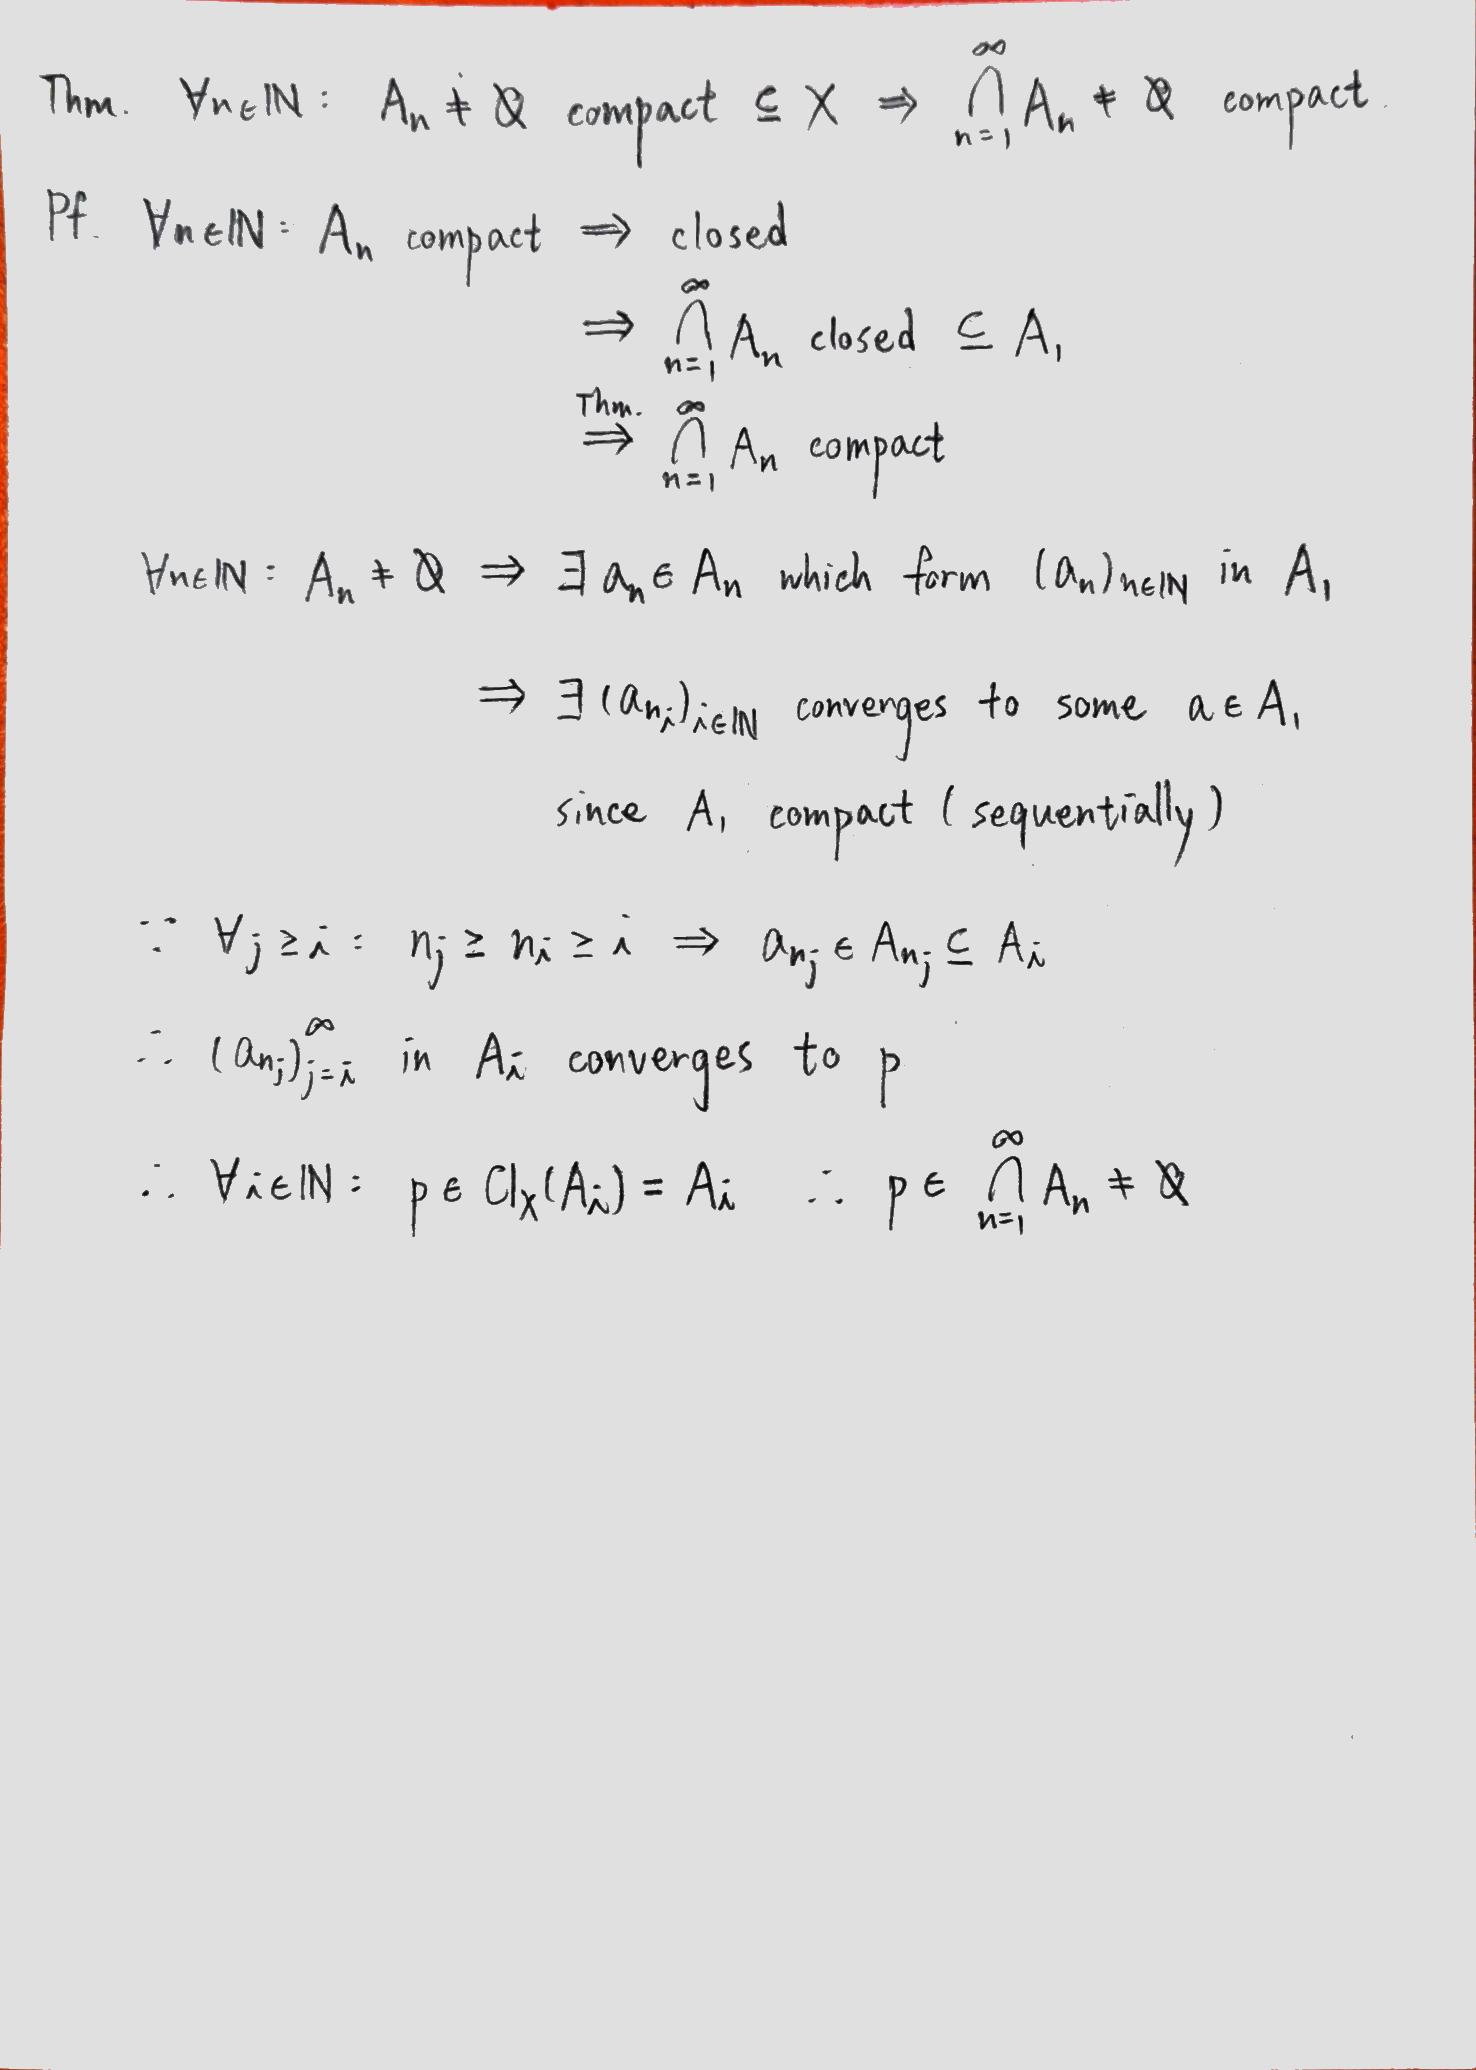 Thm. ∀n∈ℕ: Aₙ ≠ ∅ compact ⊆ X ⇒ ⋂_{n=1}^∞ Aₙ ≠ ∅ compact.
Pf. ∀n∈ℕ: Aₙ compact ⇒ closed
⇒ ⋂_{n=1}^∞ Aₙ closed ⊆ A₁
Thm. ⇒ ⋂_{n=1}^∞ Aₙ compact
∀n∈ℕ: Aₙ ≠ ∅ ⇒ ∃ aₙ ∈ Aₙ which form (aₙ)_{n∈ℕ} in A₁
⇒ ∃ (a_{n_i})_{i∈ℕ} converges to some a ∈ A₁
since A₁ compact (sequentially)
∵ ∀j ≥ i: n_j ≥ n_i ≥ i ⇒ a_{n_j} ∈ A_{n_j} ⊆ A_i
∴ (a_{n_j})_{j=i}^∞ in A_i converges to p
∴ ∀i∈ℕ: p ∈ Cl_X(A_i) = A_i ∴ p ∈ ⋂_{n=1}^∞ Aₙ ≠ ∅